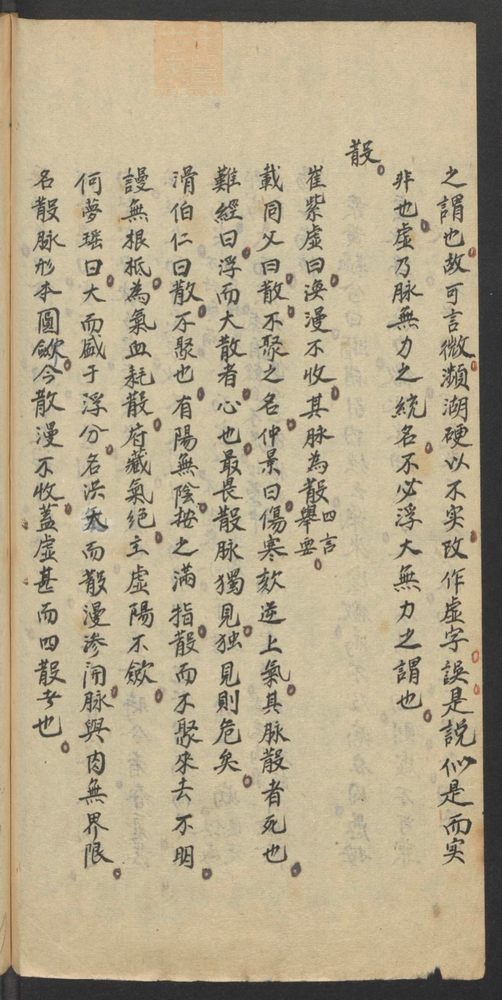 之謂也故可言微瀕湖硬以不实改作虛字誤是説似是而实
非也虛乃脉無力之統名不必浮大無力之謂也
散
崔紫虛曰渙漫不收其脉為散四言舉要
戴同父曰散不聚之名仲景曰傷寒欬逆上氣其脉散者死也
難經曰浮而大散者心也最畏散脉獨見独見則危矣
滑伯仁曰散不聚也有陽無陰按之滿指散而不聚來去不明
謾無根柢為氣血耗散府藏氣絶主虛陽不歛
何夢瑶曰大而盛于浮分名洪大而散漫滲開脉與肉無界限
名散脉形本圓歛今散漫不收蓋虛甚而四散者也